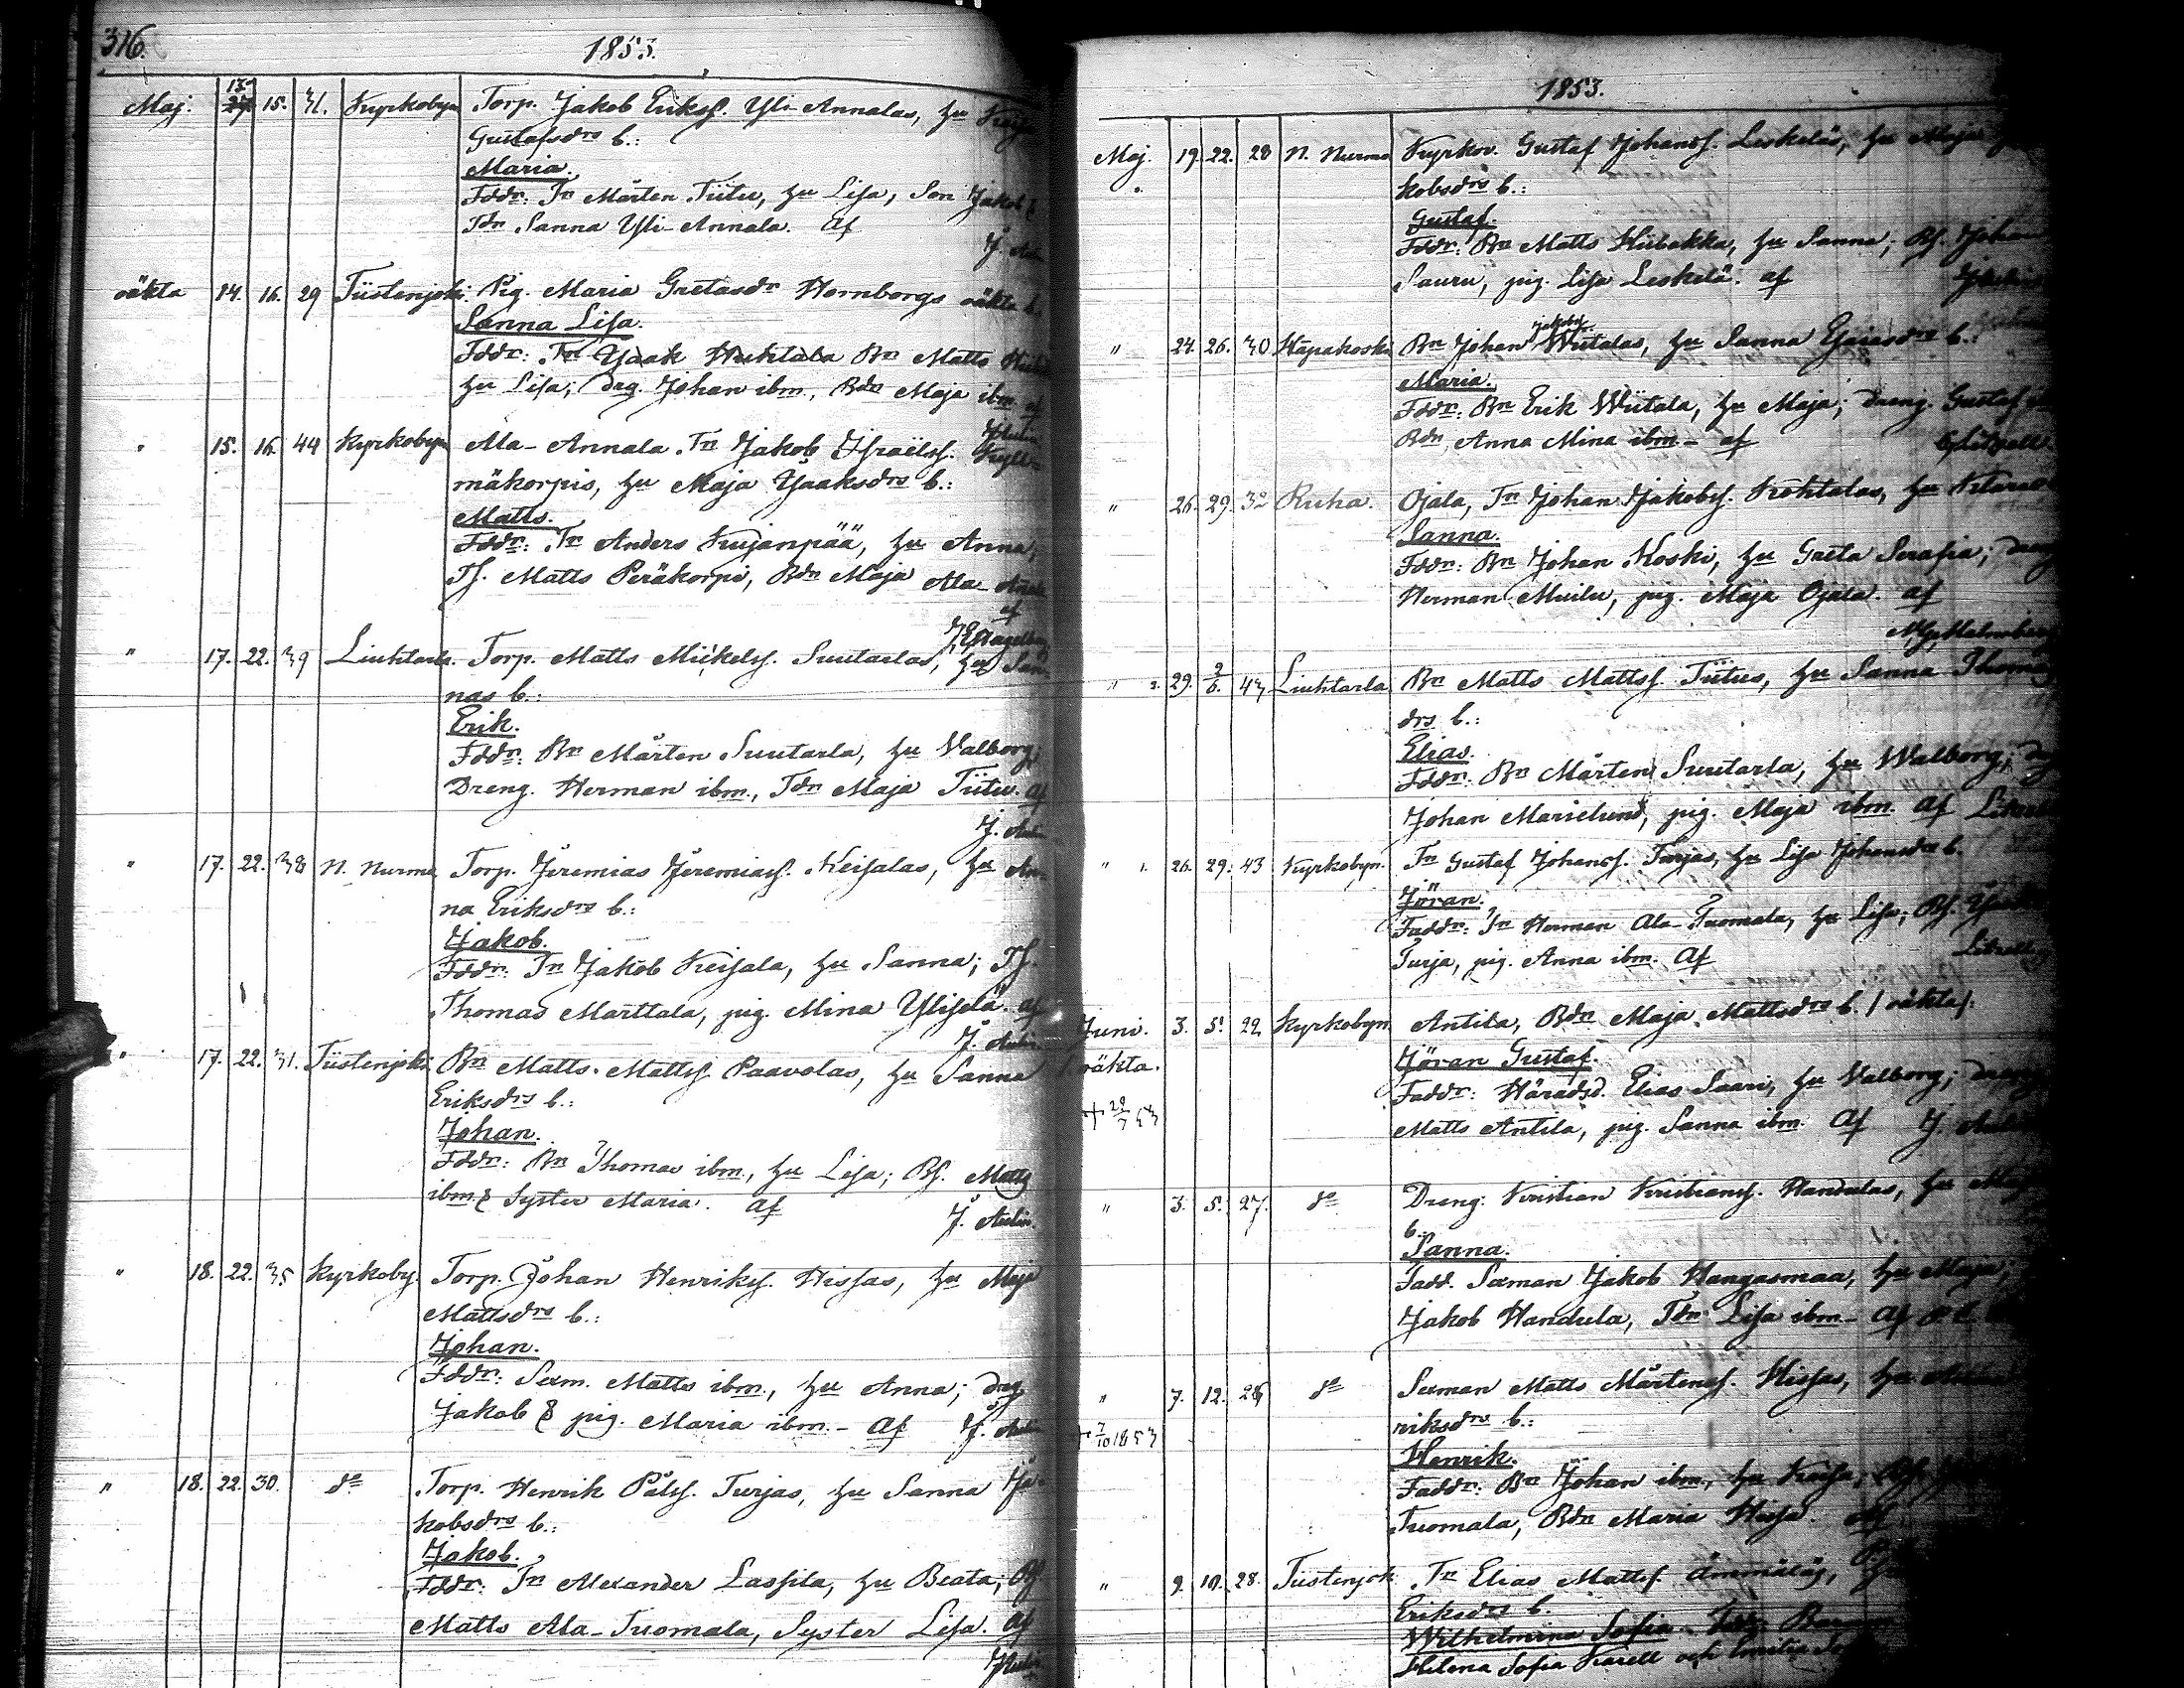 316.
1853.
Maj. 13. 27. 15. 31. Kyrkobyn Torp. Jakob Erikss. Yli-Annalas, hu Kajsa
Gustafsdrs b.:
Maria.
Fddr: Tn Mårten Tiitu, hu Lisa, Son Jakob &
Tdr Sanna Yli-Annala. Af
J. Aulin
oäkta 14. 16. 29 Tiistenjoki Pig. Maria Gretasdr Hornborgs oäkta b.
Sanna Lisa.
Fddr: Tn Isaak Huhtala Bn Matts
hu Lisa; drg. Johan ibm., Bdr Maja ibm. af
Aulin
" 15. 16. 44 Kyrkobyn Ala-Annala Tn Jakob Israëlss. Kyll-
mäkorpis, hu Maja Isaaksdrs b.:
Matts.
Fddr: Tn Anders Kujanpää, hu Anna;
Ts. Matts Peräkorpi, Bdr Maja Ala-Annala
af
J. E. Hagelberg
" 17. 22. 39 Liuhtarla. Torp. Matts Mickelss. Suutarlas, hu San-
nas b.:
Erik.
Fddr: Bn Mårten Suutarla, hu Valborg;
Dreng. Herman ibm., Tdr Maja Tiitu. Af
J. Aulin
" 17. 22. 38 N. Nurmo Torp. Jeremias Jeremiass. Keisalas, hu An-
na Eriksdrs b.:
Jakob.
Fddr: Tn Jakob Keisala, hu Sanna; Ts.
Thomas Marttala, pig. Mina Yliselä. af
J. Aulin
" 17. 22. 31. Tiistenjoki Bn Matts Mattss. Paavolas, hu Sanna
Eriksdrs b.:
Johan.
Fddr: Bn Thomas ibm., hu Lisa; Bs. Matts
ibm. & Syster Maria. Af
J. Aulin.
" 18. 22. 35 Kyrkoby. Torp. Johan Henrikss. Hissas, hu Maja
Mattsdrs b.:
Johan.
Fddr: Sexm. Matts ibm., hu Anna; drg
Jakob & pig. Maria ibm. - Af J. Aulin
" 18. 22. 30. do Torp. Henrik Pålss. Turjas, hu Sanna Ja-
kobsdrs b.:
Jakob.
Fddr: Tn Alexander Lassila, hu Beata; Bs
Matts Ala-Tuomala, Syster Lisa. Af
Aulin
1853.
Maj. 19. 22. 28 N. Nurmo Kyrkov. Gustaf Johanss. Leskeläs, hu Maja
kobsdrs b.:
Gustaf.
Fddr: Bn Matts Hiibakka, hu Sanna; Bs. Johan
Sauru, pig. Lisa Leskelä. af Aulin
" 24. 26. 30 Hapakoski Bn Johan Jakobs. Wiitalas, hu Sanna Esaiasdrs b.:
Maria.
Fddr: Bn Erik Wiitala, hu Maja; dreng. Gustaf
Bdr Anna Mina ibm - af
" 26. 29. 32 Ruha. Ojala, Tn Johan Jakobss. Kohtalas, hu
Sanna.
Fddr: Bn Johan Koski, hu Greta Serafia; dreng
Herman Muilu, pig. Maja Ojala. af
Malmberg
" 2. 29. 2/6. 43 Liuhtarla Bn Matts Mattss. Tiitus, hu Sanna Thomas
drs b.:
Elias.
Fddr: Bn Mårten Suutarla, hu Walborg; drg
Johan Marielund, pig. Maja ibm. Af
" 1. 26. 29. 43 Kyrkobyn. Tn Gustaf Johanss. Turjas, hu Lisa Johansdrs b.
Jöran.
Faddr: Tn Herman Ala-Tuomala, hu Lisa; Bs.
Turja, pig. Anna ibm. Af
Juni. 3. 5. 22 Kyrkobyn Antila, Bdr Maja Mattsdrs b. / oäkta /.
oäkta. Jöran Gustaf.
Faddr: Häradsd. Elias Saari, hu Valborg; dreng
+ 28/7 53 Matts Antila, pig. Sanna ibm. Af J. Aulin
" 3. 5. 27. do Dreng. Kristian Kristianss. Handulas, hu Maja
b.
Sanna.
Fadd. Sexman Jakob Hangasmaa, hu Maja;
Jakob Handula, Tdr Lisa ibm - Af
" 7. 12. 28 do Sexman Matts Mårtenss. Hissas, hu
+ 7/10 1853 riksdrs b.:
Henrik.
Faddr: Bn Johan ibm, hu Kaisa;
Tuomala, Bdr Maria Hissa. Af
" 9. 10. 28. Tiistenjok Tn Elias Mattss. Ämmäläs,
Eriksdrs b.
Wilhelmina Sofia.
Helena Sofia Karell och Emilia